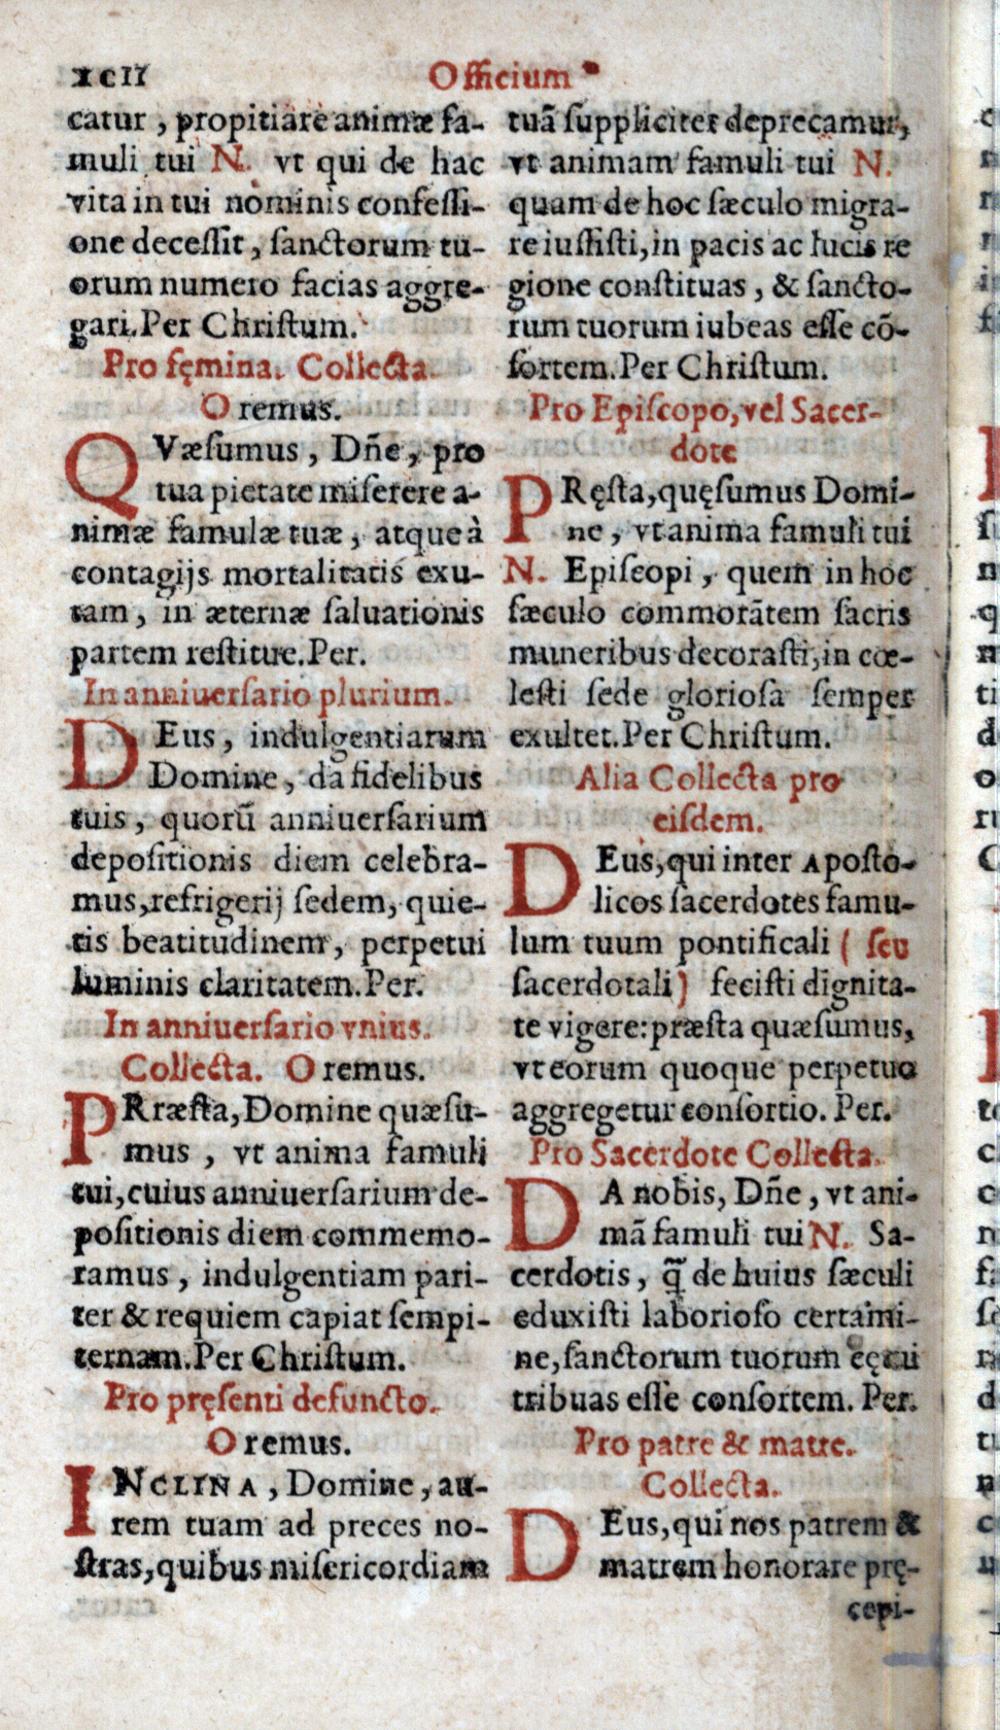 xcii
Officium
catur, propitiare animæ fa-
muli tui N. vt qui de hac
vita in tui nominis confeſſi-
one deceſſit, ſanctorum tu-
orum numero facias aggre-
gari. Per Chriſtum.
Pro fęmina. Collecta.
Oremus.
QVæſumus, Dñe, pro
tua pietate miſerere a-
nimæ famulæ tuæ, atque à
contagijs mortalitatis exu-
tam, in æternæ ſaluationis
partem reſtitue. Per.
In anniuerſario plurium.
DEus, indulgentiarum
Domine, da fidelibus
tuis, quorũ anniuerſarium
depoſitionis diem celebra-
mus, refrigerij ſedem, quie-
tis beatitudinem, perpetui
luminis claritatem. Per.
In anniuerſario vnius.
Collecta. Oremus.
PRræſta, Domine quæſu-
mus, vt anima famuli
tui, cuius anniuerſarium de-
poſitionis diem commemo-
ramus, indulgentiam pari-
ter & requiem capiat ſempi-
ternam. Per Chriſtum.
Pro pręſenti defuncto.
Oremus.
INCLINA, Domine, au-
rem tuam ad preces no-
ſtras, quibus miſericordiam
tuã ſuppliciter deprecamur,
vt animam famuli tui N.
quam de hoc ſæculo migra-
re iuſſiſti, in pacis ac lucis re
gione conſtituas, & ſancto-
rum tuorum iubeas eſſe cõ-
ſortem. Per Chriſtum.
Pro Epiſcopo, vel Sacer-
dote
PRęſta, quęſumus Domi-
ne, vt anima famuli tui
N. Epiſcopi, quem in hoc
ſæculo commorãtem ſacris
muneribus decoraſti, in cœ-
leſti ſede glorioſa ſemper
exultet. Per Chriſtum.
Alia Collecta pro
eiſdem.
DEus, qui inter Apoſto-
licos ſacerdotes famu-
lum tuum pontificali (ſeu
ſacerdotali) feciſti dignita-
te vigere: præſta quæſumus,
vt eorum quoque perpetuo
aggregetur conſortio. Per.
Pro Sacerdote Collecta.
DA nobis, Dñe, vt ani-
mã famuli tui N. Sa-
cerdotis, q̃ de huius ſæculi
eduxiſti laborioſo certami-
ne, ſanctorum tuorum cętui
tribuas eſſe conſortem. Per.
Pro patre & matre.
Collecta.
DEus, qui nos patrem &
matrem honorare prę-
cepi-